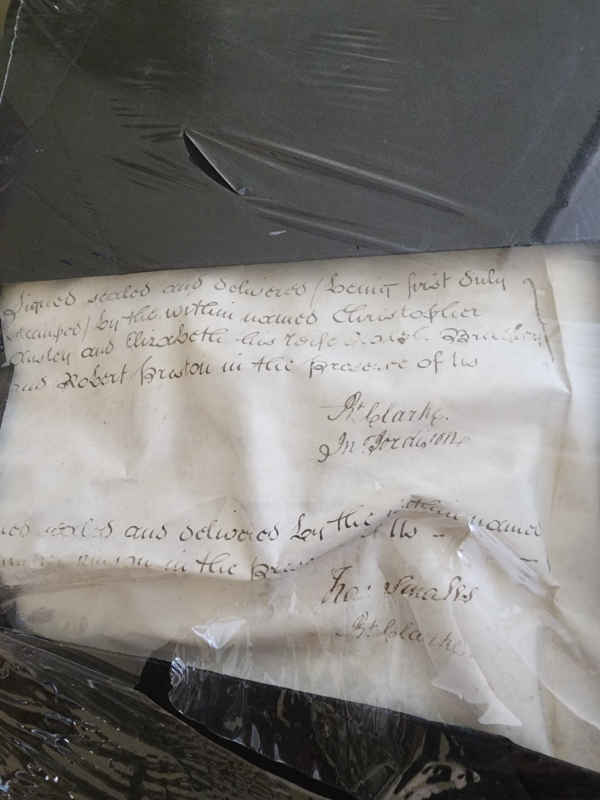 Signed sealed and delivered (being first duly
stamped) by the within named Christopher
and Elizabeth his wife
and Robert Priston in the presence of us
Rt. Clarke.
Jn. Jordison
sealed and delivered by the within named
in the
Tho. Smales
Rt. Clarke